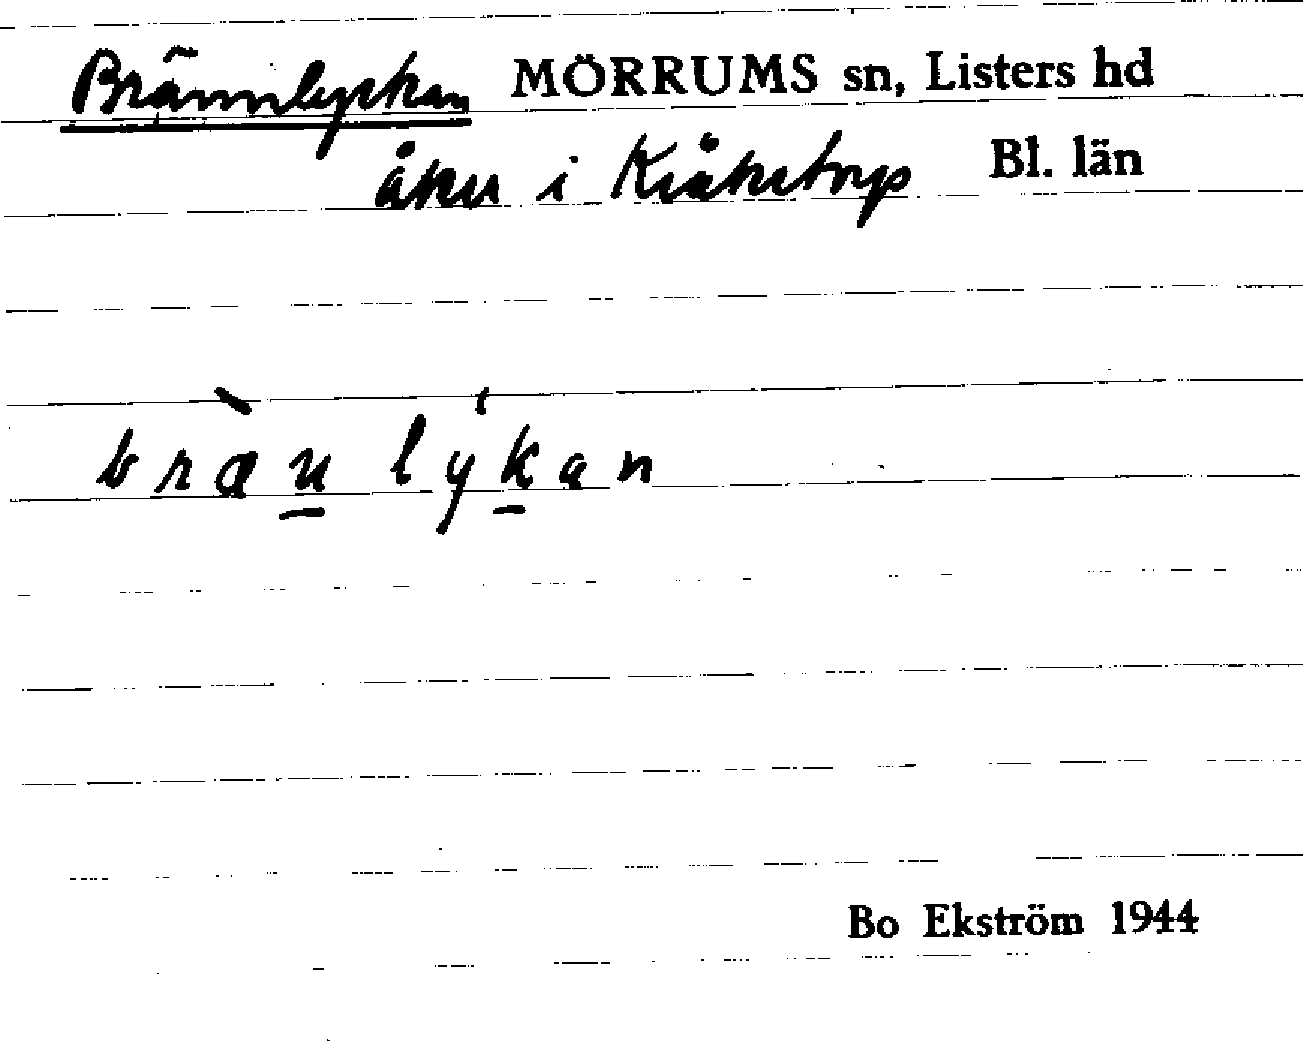 Brännlyckan MÖRRUMS sn, Listers hd
åker i Kråketorp Bl. län
bràn lýkan
Bo Ekström 1944